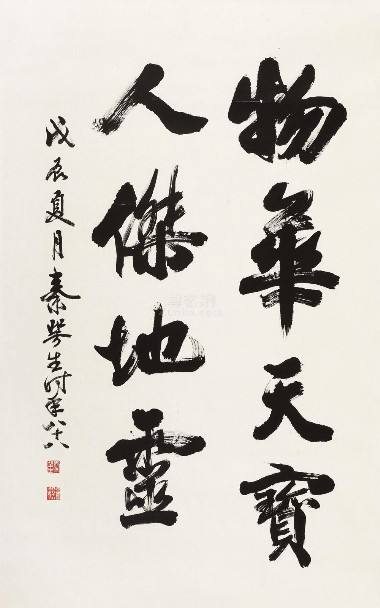 物華天寶
人傑地靈
戊辰夏月秦咢生時年八十八